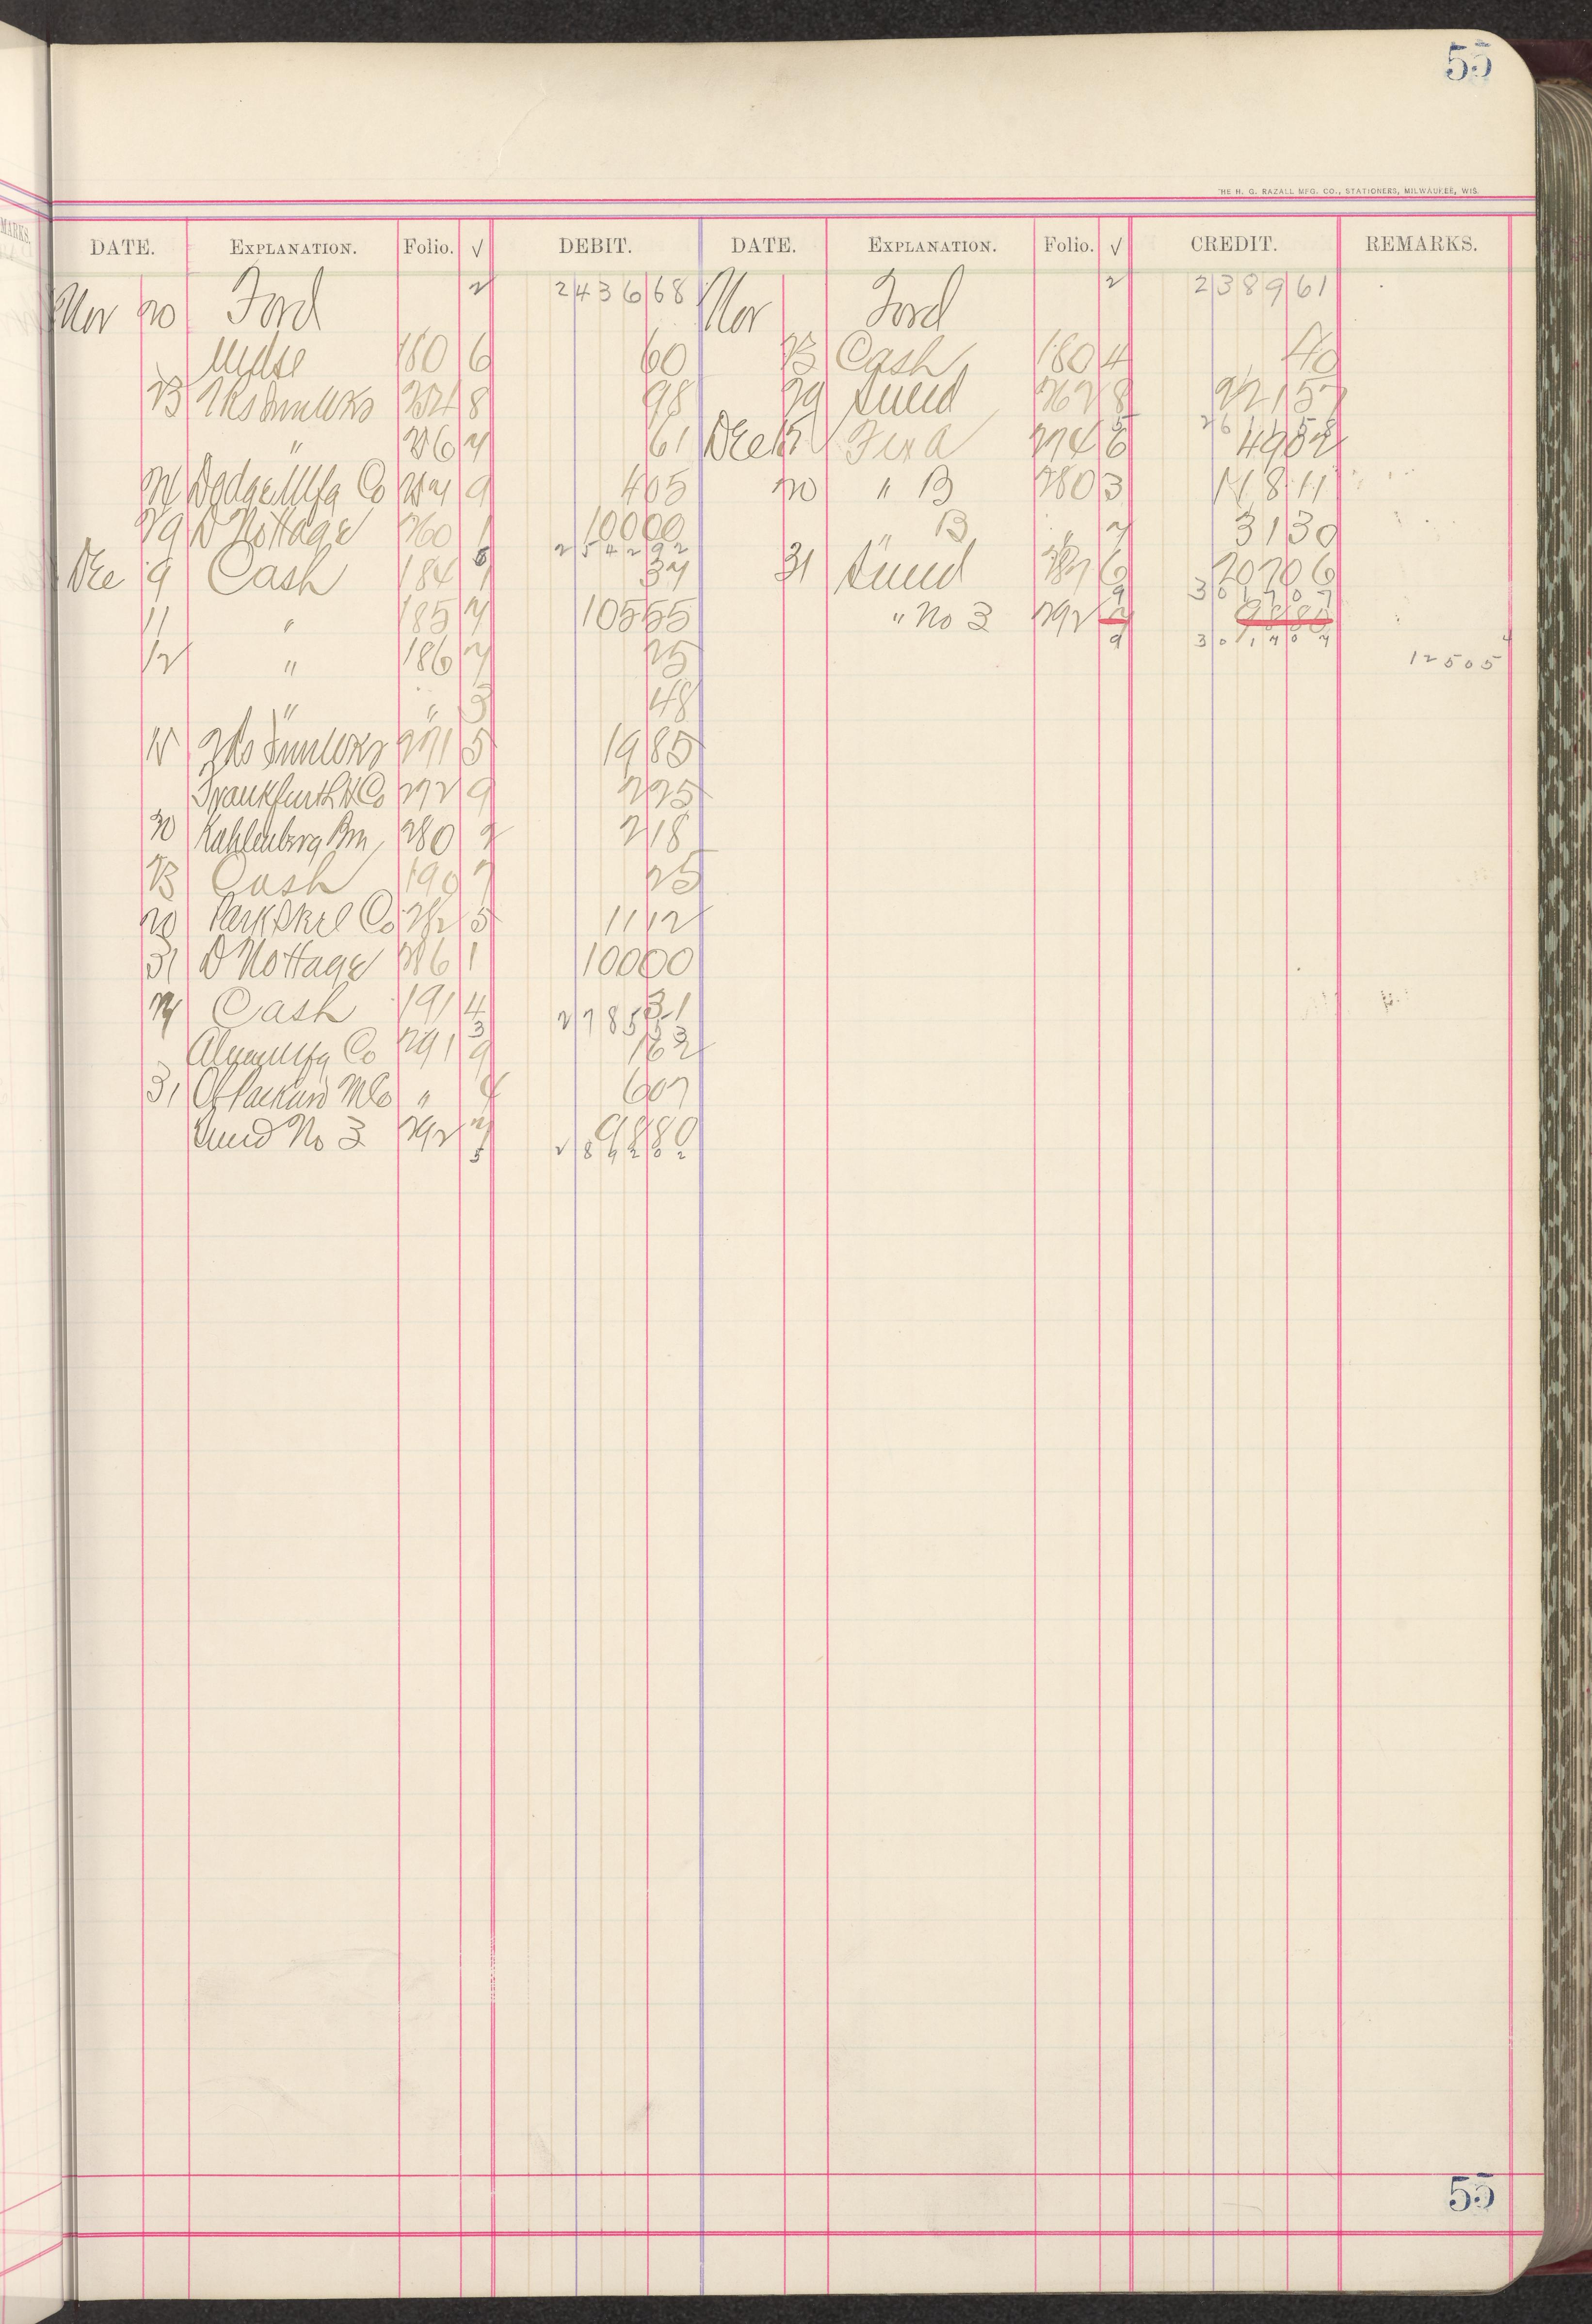 55
THE H. G. RAZALL MFG. CO., STATIONERS, MILWAUKEE, WIS.
MARKS.
DATE. EXPLANATION. Folio. √ DEBIT. DATE. EXPLANATION. Folio. √ CREDIT. REMARKS.
Nov 20 Ford 2 2436 68 Nov Ford 2 2389 61
Mdse 180 6 60 23 Cash 180 4 40
23 254 8 98 29 Sund 262 8 221 57
" 256 7 61 Dec 15 274 6 49 52
5 26 61 58
Dodge Mfg Co 257 9 4 05 20 " B 280 3
29 D Nottage 260 1 100 00 " B " 7 31 30
6 2542 92
Dec 9 Cash 184 7 37 31 Sund 287 6 207 06
9 3017 07
11 " 185 7 105 55 " No 3 292 7 98 80
9 3017 07
12 " 186 7 25 125 05
" " 3 48
15 271 5 19 85
Frankfurth H Co 272 9 2 25
20 Kahlenberg Bro 280 2 2 18
23 Cash 190 7 25
20 Park Co 282 5 11 12
31 D Nottage 286 1 100 00
24 Cash 191 4 31
3 2785 53
Mfg Co 291 9 1 62
31 Packard M Co " 4 6 07
Sund No 3 292 7 98 80
5 2892 02
55